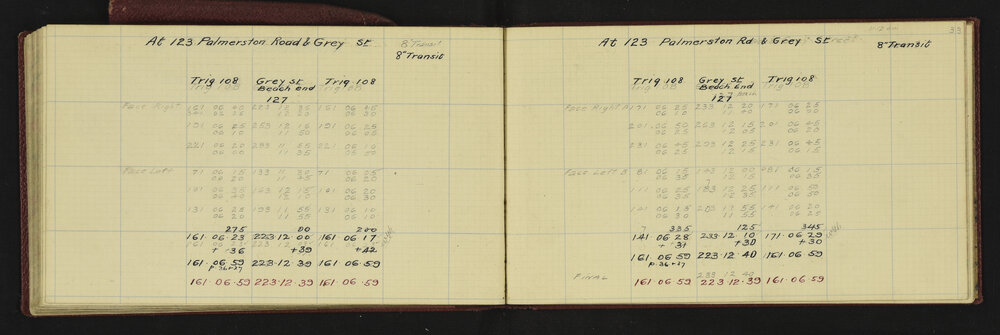 At 123 Palmerston Road & Grey St
8" Transit
8" Transit
Trig 108 Grey St Trig 108
Trig 108 Beach End Trig 108
127
Face Right 161 06 40 223 12 35 161 06 45
341 06 25 12 20 06 30
191 06 25 253 12 15 191 06 25
06 10 11 50 06 00
221 06 20 283 11 55 221 06 10
06 00 11 35 05 50
Face Left 71 06 35 133 11 30 71 06 25
06 20 11 35 06 20
101 06 35 163 12 15 101 06 20
06 40 12 10 06 30
131 06 25 193 11 55 131 06 10
06 20 11 55 06 20
275 00 200
161 06 23 223 12 00 161 06 17
+ 36 +39 +42
161 06 59 223 12 39 161 06 59
p.36+37
161 06 59 223 12 39 161 06 59
33
At 123 Palmerston Rd & Grey St
8" Transit
Trig 108 Grey St Trig 108
Trig 108 Beach End Trig 108
127
Face Right A 171 06 25 233 12 20 171 06 25
06 10 11 40 06 05
201 06 50 263 12 15 201 06 45
06 25 12 05 06 20
231 06 45 293 12 25 231 06 45
06 25 12 05 06 15
Face Left B 81 06 15 143 12 00 081 06 15
06 35 12 15 06 35
111 06 25 183 12 25 111 06 50
06 35 12 10 06 50
141 06 15 203 12 55 141 06 20
06 30 12 55 06 35
335 125 345
141 06 28 233 12 10 171 06 29
+ 31 +30 + 30
161 06 59 223 12 40 161 06 59
p.36+37
FINAL 233 12 40
161 06 59 223 12 39 161 06 59